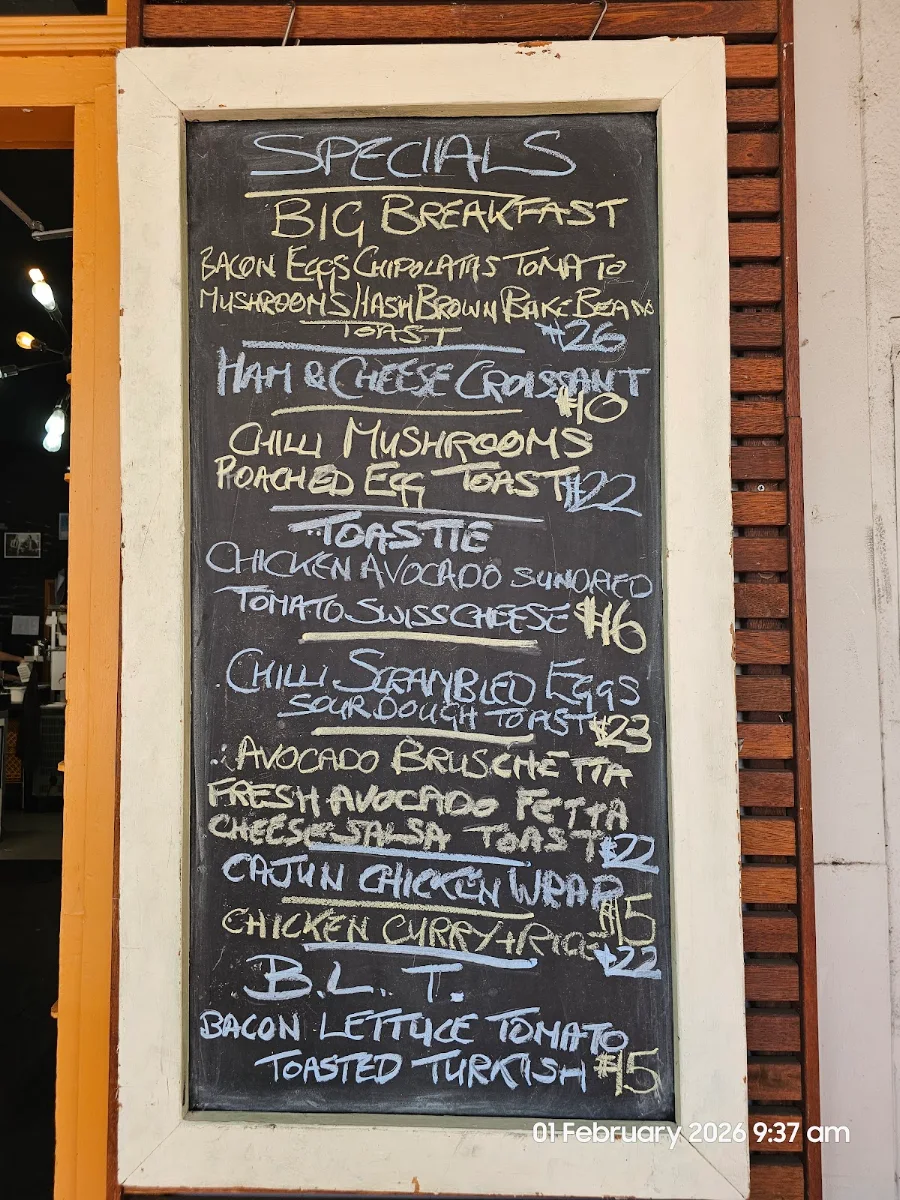 SPECIALS
BIG BREAKFAST
BACON EGGS CHIPOLATAS TOMATO
MUSHROOMS/HASHBROWN/BAKE BEAN
TOAST $26
HAM & CHEESE CROISSANT
$10
CHILLI MUSHROOMS
POACHED EGG TOAST $22
TOASTIE
CHICKEN AVOCADO SUNDRIED
TOMATO SWISS CHEESE $16
CHILLI SCRAMBLED EGGS
SOURDOUGH TOAST $23
AVOCADO BRUSCHETTA
FRESH AVOCADO FETTA
CHEESE SALSA TOAST $22
CAJUN CHICKEN WRAP
$15
CHICKEN CURRY + RICE
$22
B.L.T.
BACON LETTUCE TOMATO
TOASTED TURKISH $15
01 February 2026 9:37 am